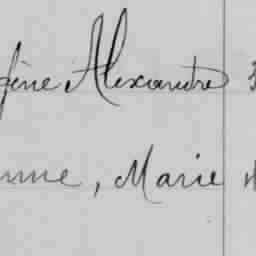 gène Alexandre
nne, Marie